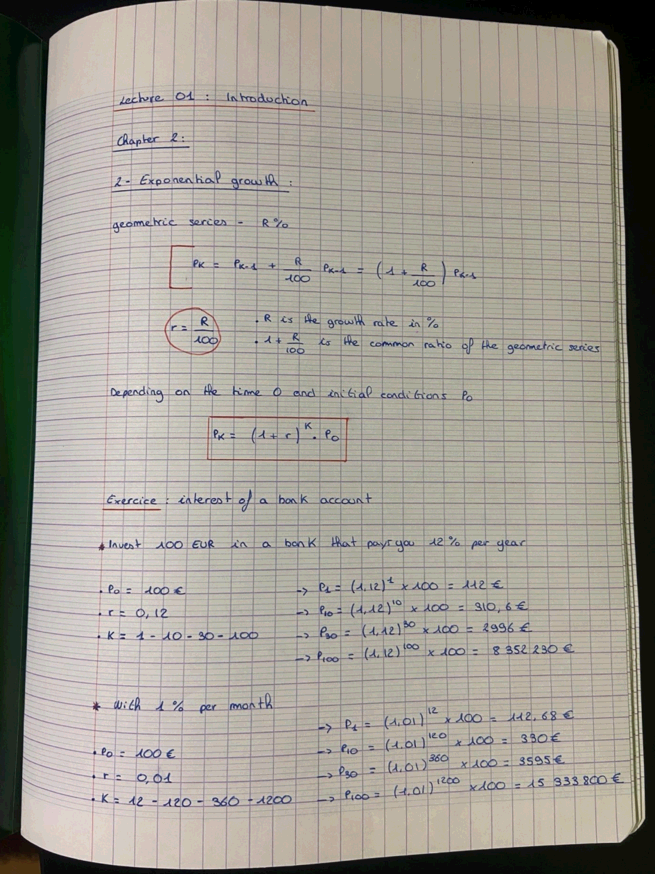 Lecture 01 : Introduction
Chapter 2 :
2 - Exponential growth :
geometric series - R%
PK = PK-1 + R/100 PK-1 = (1 + R/100) PK-1
r = R/100
. R is the growth rate in %
. 1 + R/100 is the common ratio of the geometric series
Depending on the time 0 and initial conditions P0
PK = (1 + r)^K . P0
Exercice : interest of a bank account
* Invest 100 EUR in a bank that pays you 12% per year
. P0 = 100 €
. r = 0,12
. K = 1 - 10 - 30 - 100
-> P1 = (1,12)^1 x 100 = 112 €
-> P10 = (1,12)^10 x 100 = 310,6 €
-> P30 = (1,12)^30 x 100 = 2996 €
-> P100 = (1,12)^100 x 100 = 8 352 230 €
* With 1% per month
. P0 = 100 €
. r = 0,01
. K = 12 - 120 - 360 - 1200
-> P1 = (1,01)^12 x 100 = 112,68 €
-> P10 = (1,01)^120 x 100 = 330 €
-> P30 = (1,01)^360 x 100 = 3595 €
-> P100 = (1,01)^1200 x 100 = 15 333 800 €